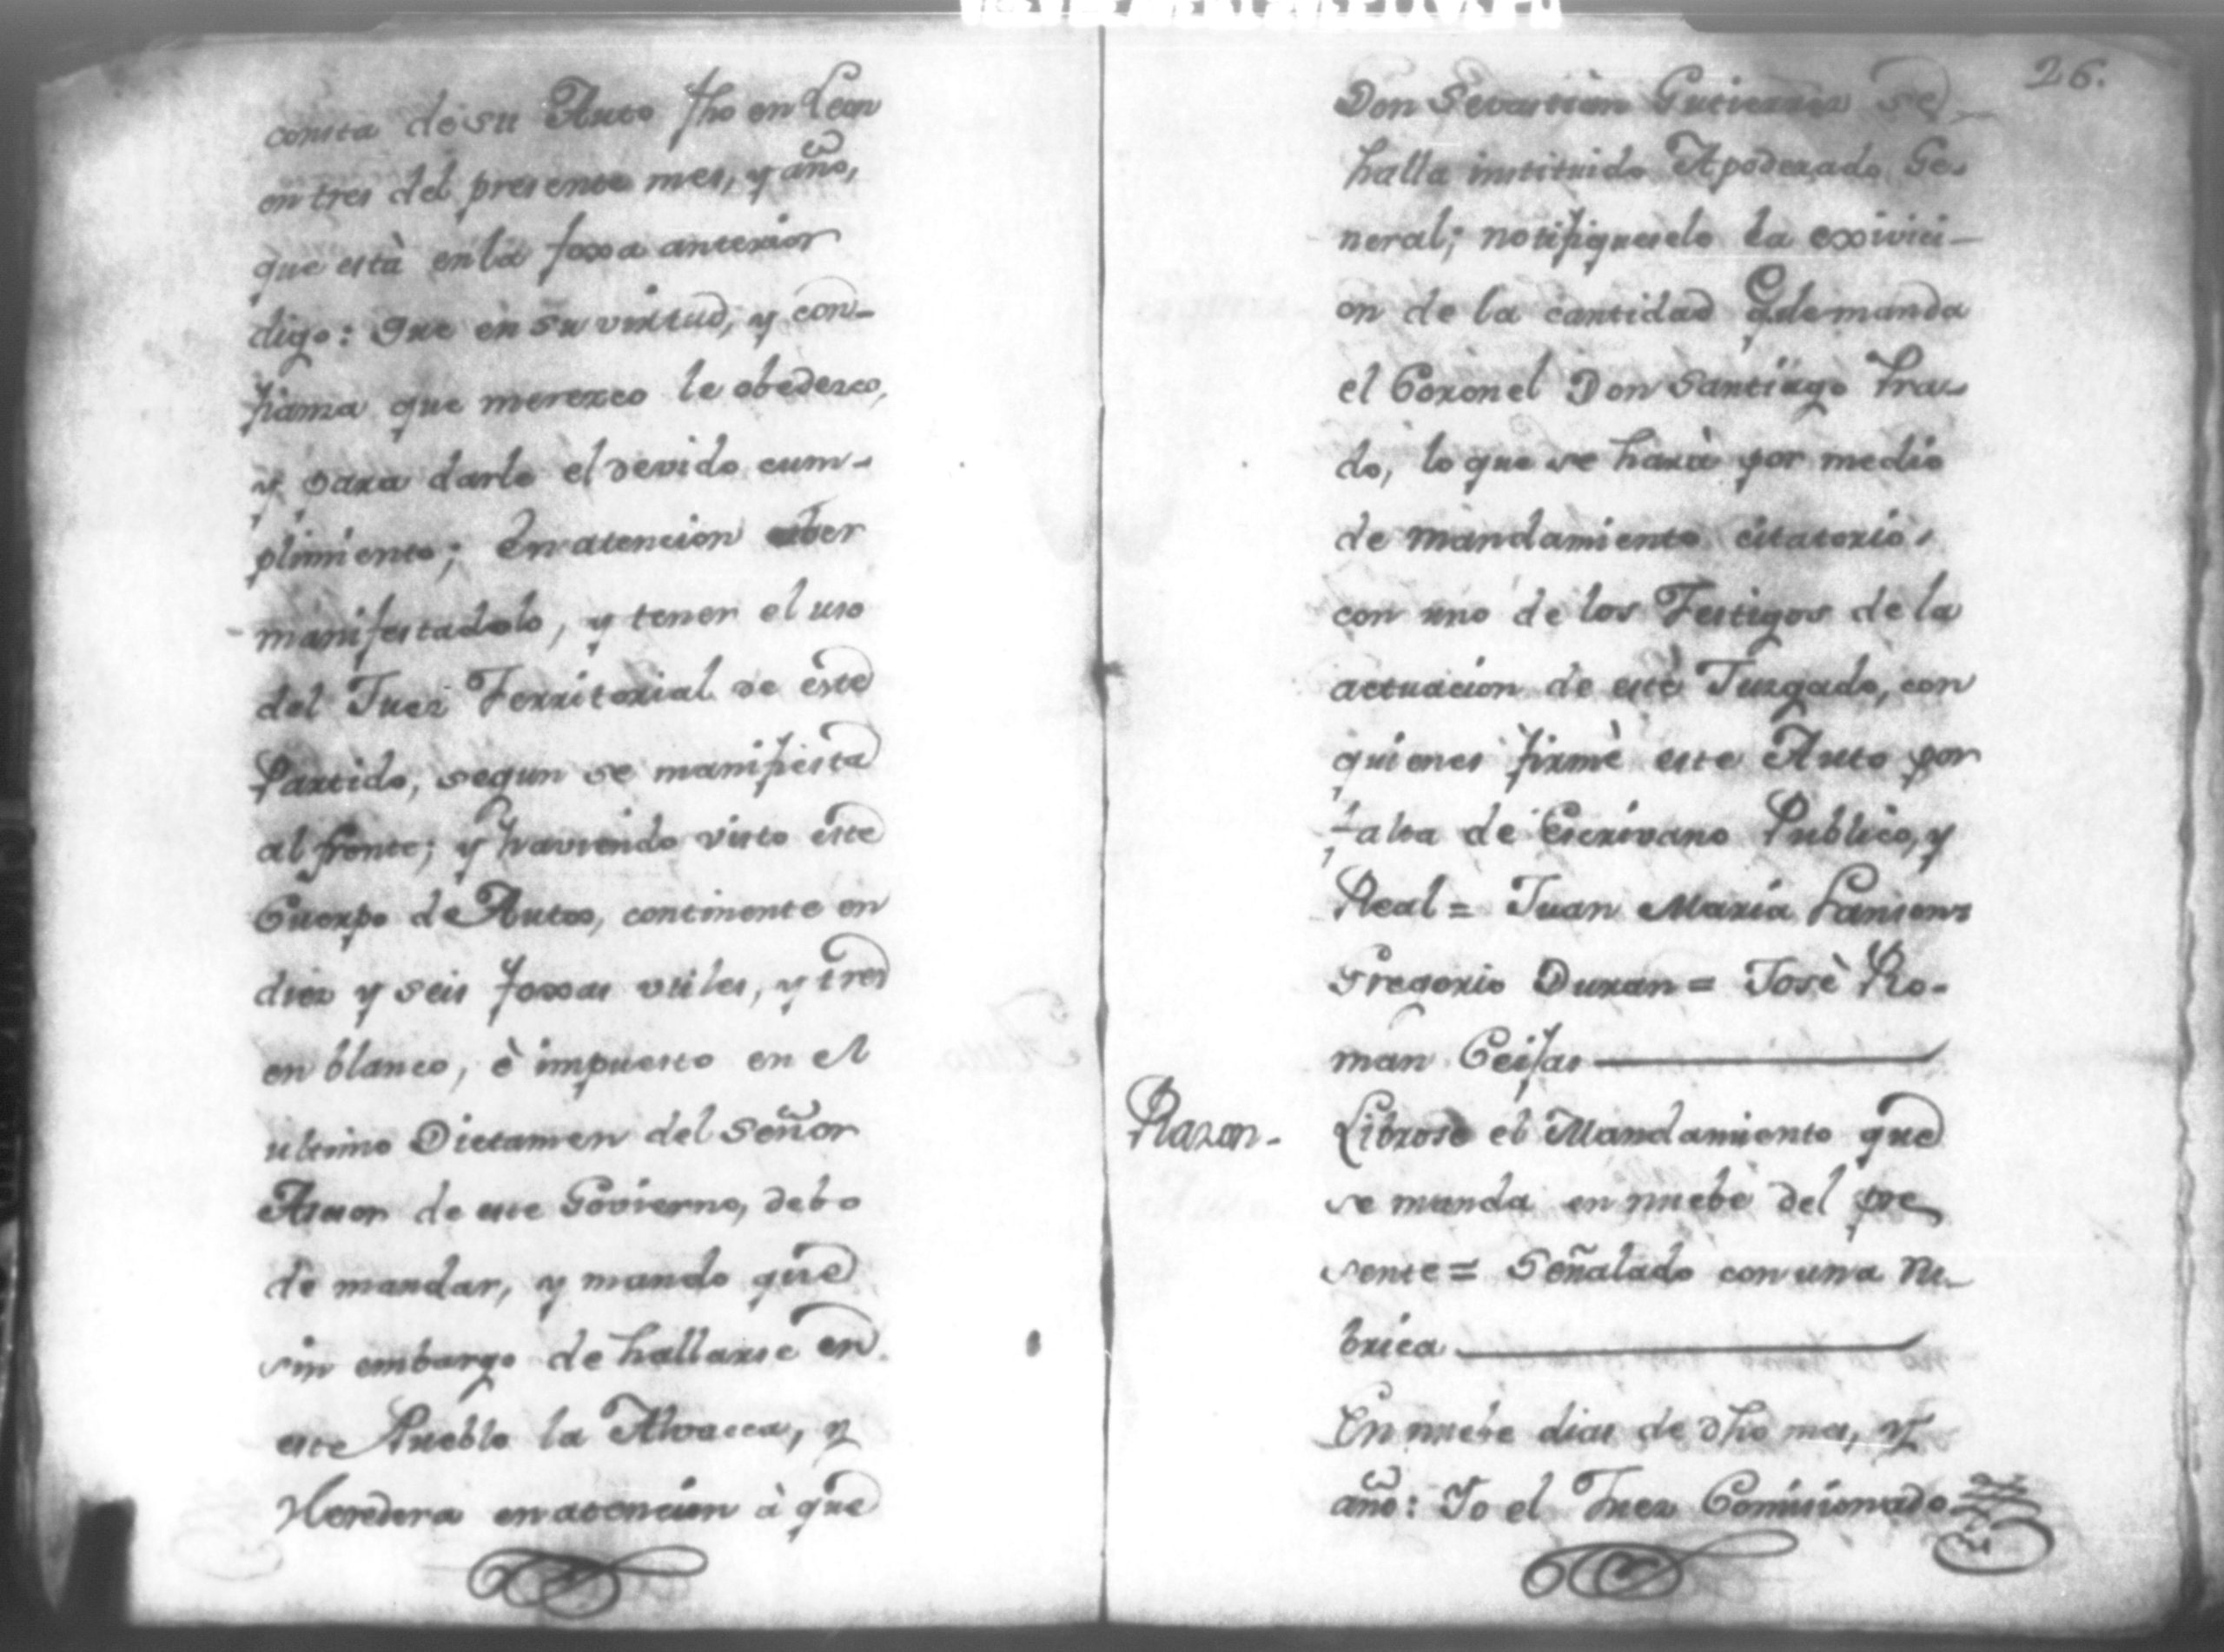 consta de su Auto fho en Leon
en tres del presente mes, y año,
que està en la foxa anterior
digo: Que en su virtud, y con-
fianza que merezco le obedezco,
y para darle el devido cum-
plimiento; En atencion aber
manifestadolo, y tener el uso
del Juez Territorial de este
Partido, segun se manifiesta
al frente; y haviendo visto este
Cuerpo de Autos, continente en
diez y seis foxas utiles, y tres
en blanco, è impuesto en el
ultimo Dictamen del Señor
Asesor de este Govierno, debo
de mandar, y mando que
sin embargo de hallarse en
este Pueblo la Alvacea, y
Heredera en atencion à que
26.
Don Sevastian Gutierrez se
halla instituido Apoderado Ge-
neral; notifiquesele la exivici-
on de la cantidad q.e demanda
el Coronel Don Santiago Pra-
do, lo que se harà por medio
de mandamiento citatorio,
con uno de los Testigos de la
actuacion de este Juzgado, con
quienes firmè este Auto por
falta de Escrivano Publico, y
Real = Juan Maria
Gregorio Duran = Josè Ro-
man Ceisas
Razon-
Librose el Mandamiento que
se manda en nuebe del pre
sente = Señalado con una Ru-
brica
En nuebe dias de dho mes, y
año: Yo el Juez Comicionado